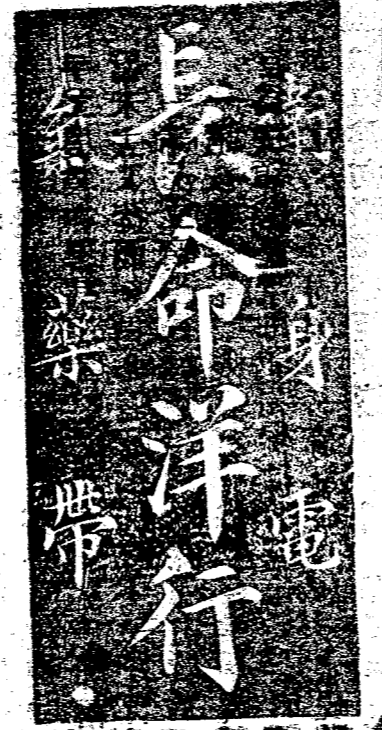 身電
長命洋行
氣藥帶